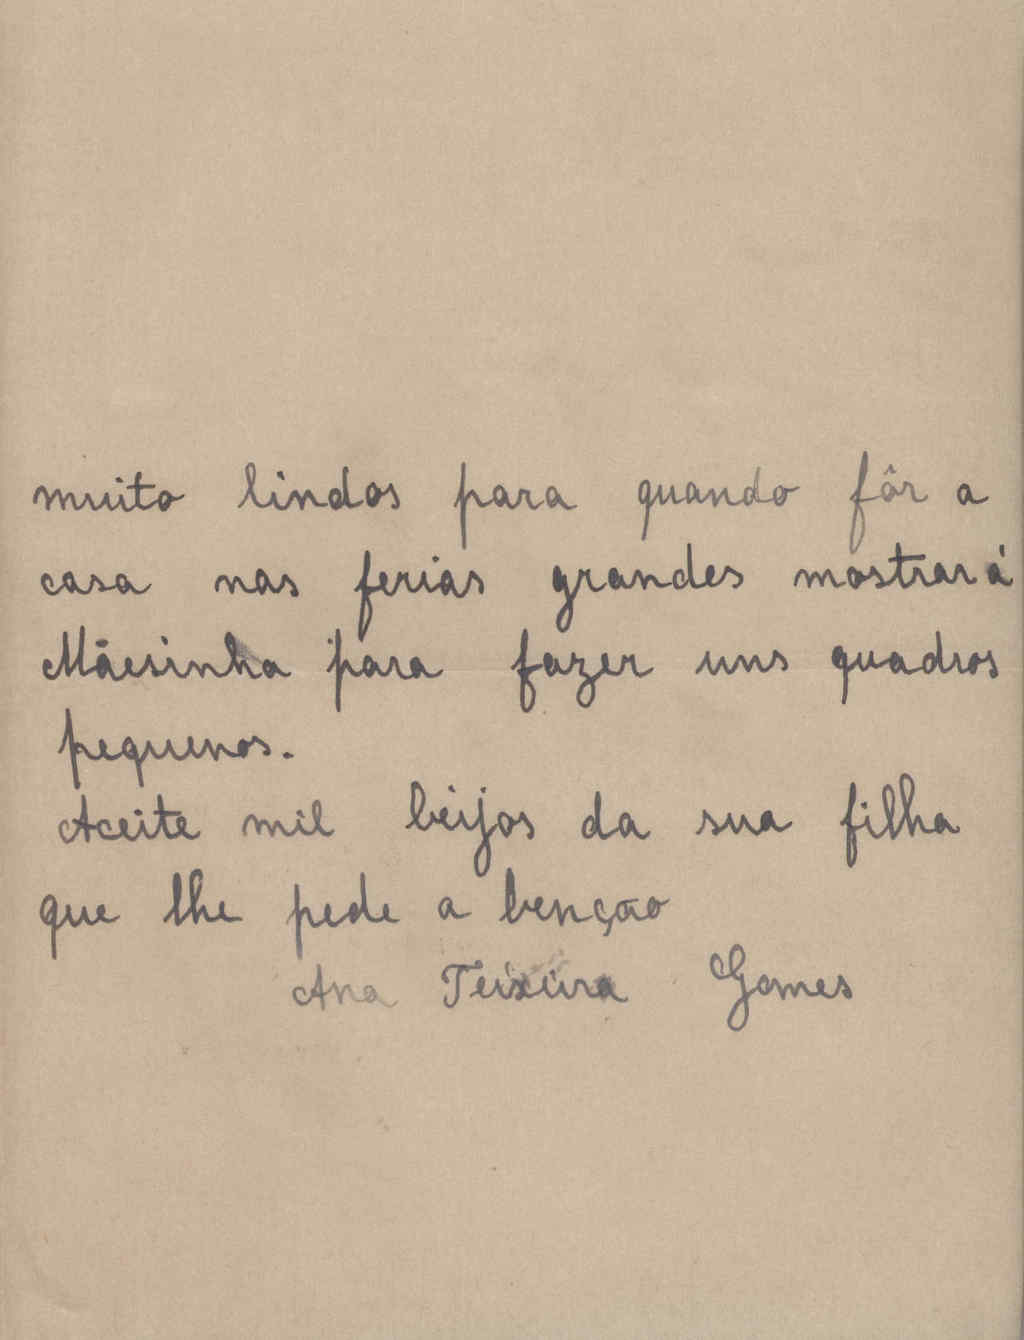 muito lindos para quando fôr a
casa nas ferias grandes mostrar á
Mãesinha para fazer uns quadros
pequenos.
Aceite mil beijos da sua filha
que lhe pede a benção
Ana Teixeira Gomes